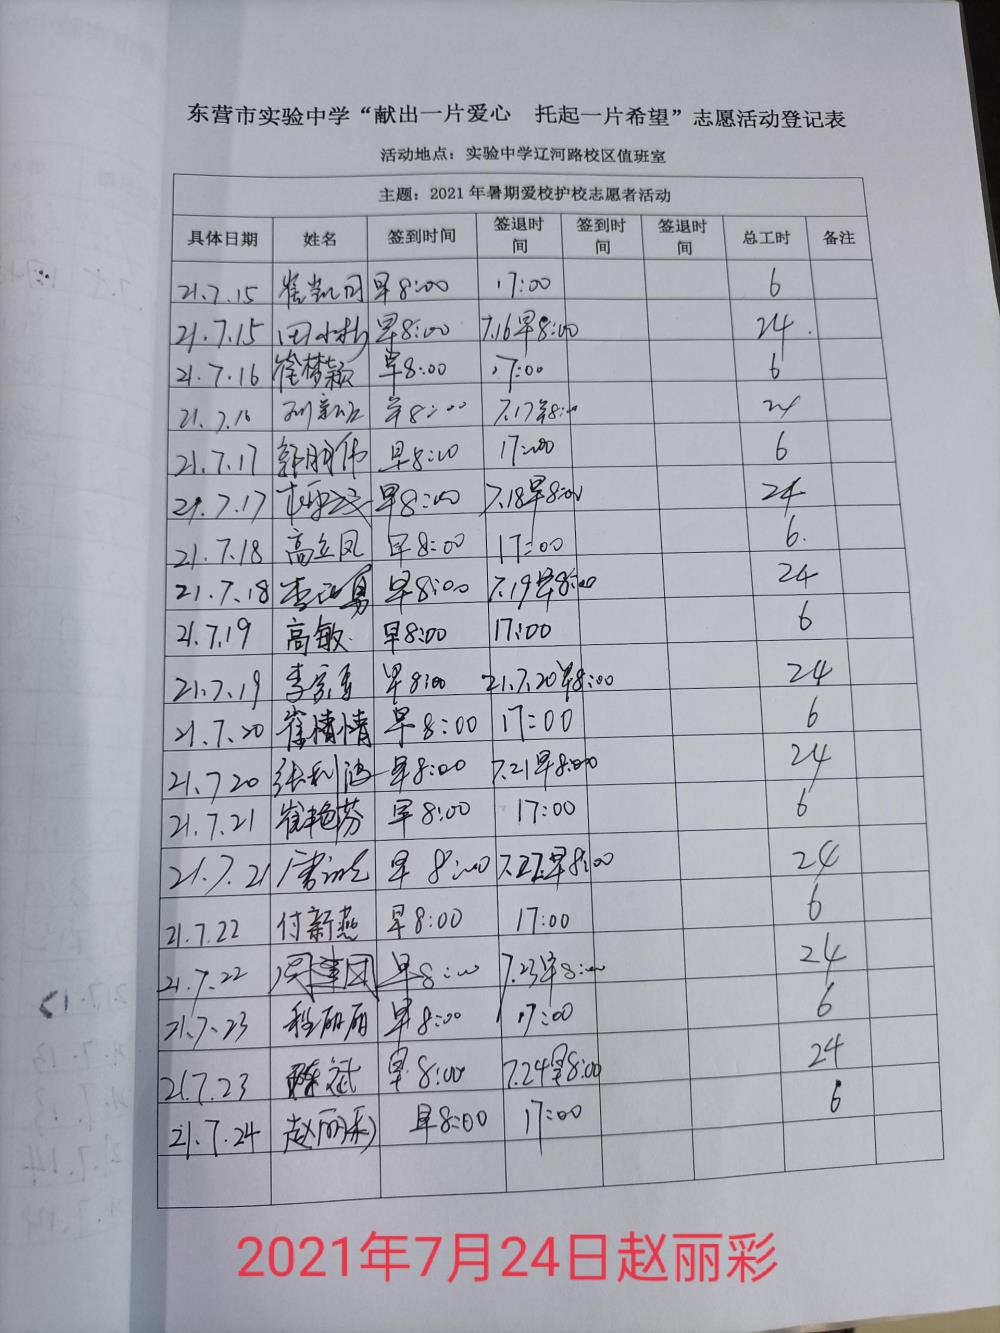 东营市实验中学“献出一片爱心　托起一片希望”志愿活动登记表
活动地点：实验中学辽河路校区值班室
主题：2021年暑期爱校护校志愿者活动
具体日期 姓名 签到时间 签退时间 签到时间 签退时间 总工时 备注
21.7.15 崔凯同 早8:00 17:00 6
21.7.15 早8:00 7.16早8:00 24
21.7.16 崔梦颖 早8:00 17:00 6
21.7.16 早8:00 7.17早8:00 24
21.7.17 郭鹏伟 早8:00 17:00 6
21.7.17 早8:00 7.18早8:00 24
21.7.18 高立凤 早8:00 17:00 6
21.7.18 早8:00 7.19早8:00 24
21.7.19 高敏 早8:00 17:00 6
21.7.19 早8:00 21.7.20早8:00 24
21.7.20 崔倩倩 早8:00 17:00 6
21.7.20 张利鸿 早8:00 7.21早8:00 24
21.7.21 崔艳芬 早8:00 17:00 6
21.7.21 早8:00 7.22早8:00 24
21.7.22 付新燕 早8:00 17:00 6
21.7.22 周建国 早8:00 7.23早8:00 24
21.7.23 程丽丽 早8:00 17:00 6
21.7.23 陈斌 早8:00 7.24早8:00 24
21.7.24 赵丽彩 早8:00 17:00 6
2021年7月24日赵丽彩